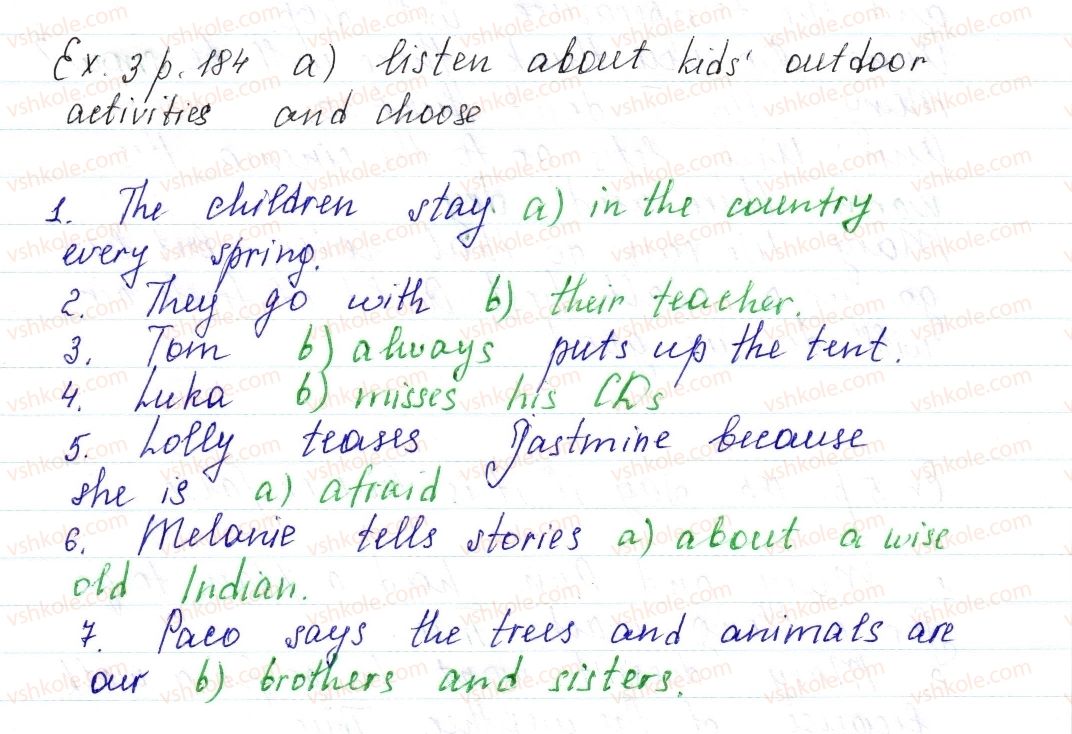 Ex. 3 p. 184 a) listen about kids' outdoor
activities and choose
1. The children stay a) in the country
every spring.
2. They go with b) their teacher.
3. Tom b) always puts up the tent.
4. Luka b) misses his CDs
5. Lolly teases Jastmine because
she is a) afraid
6. Melanie tells stories a) about a wise
old Indian.
7. Paco says the trees and animals are
our b) brothers and sisters.